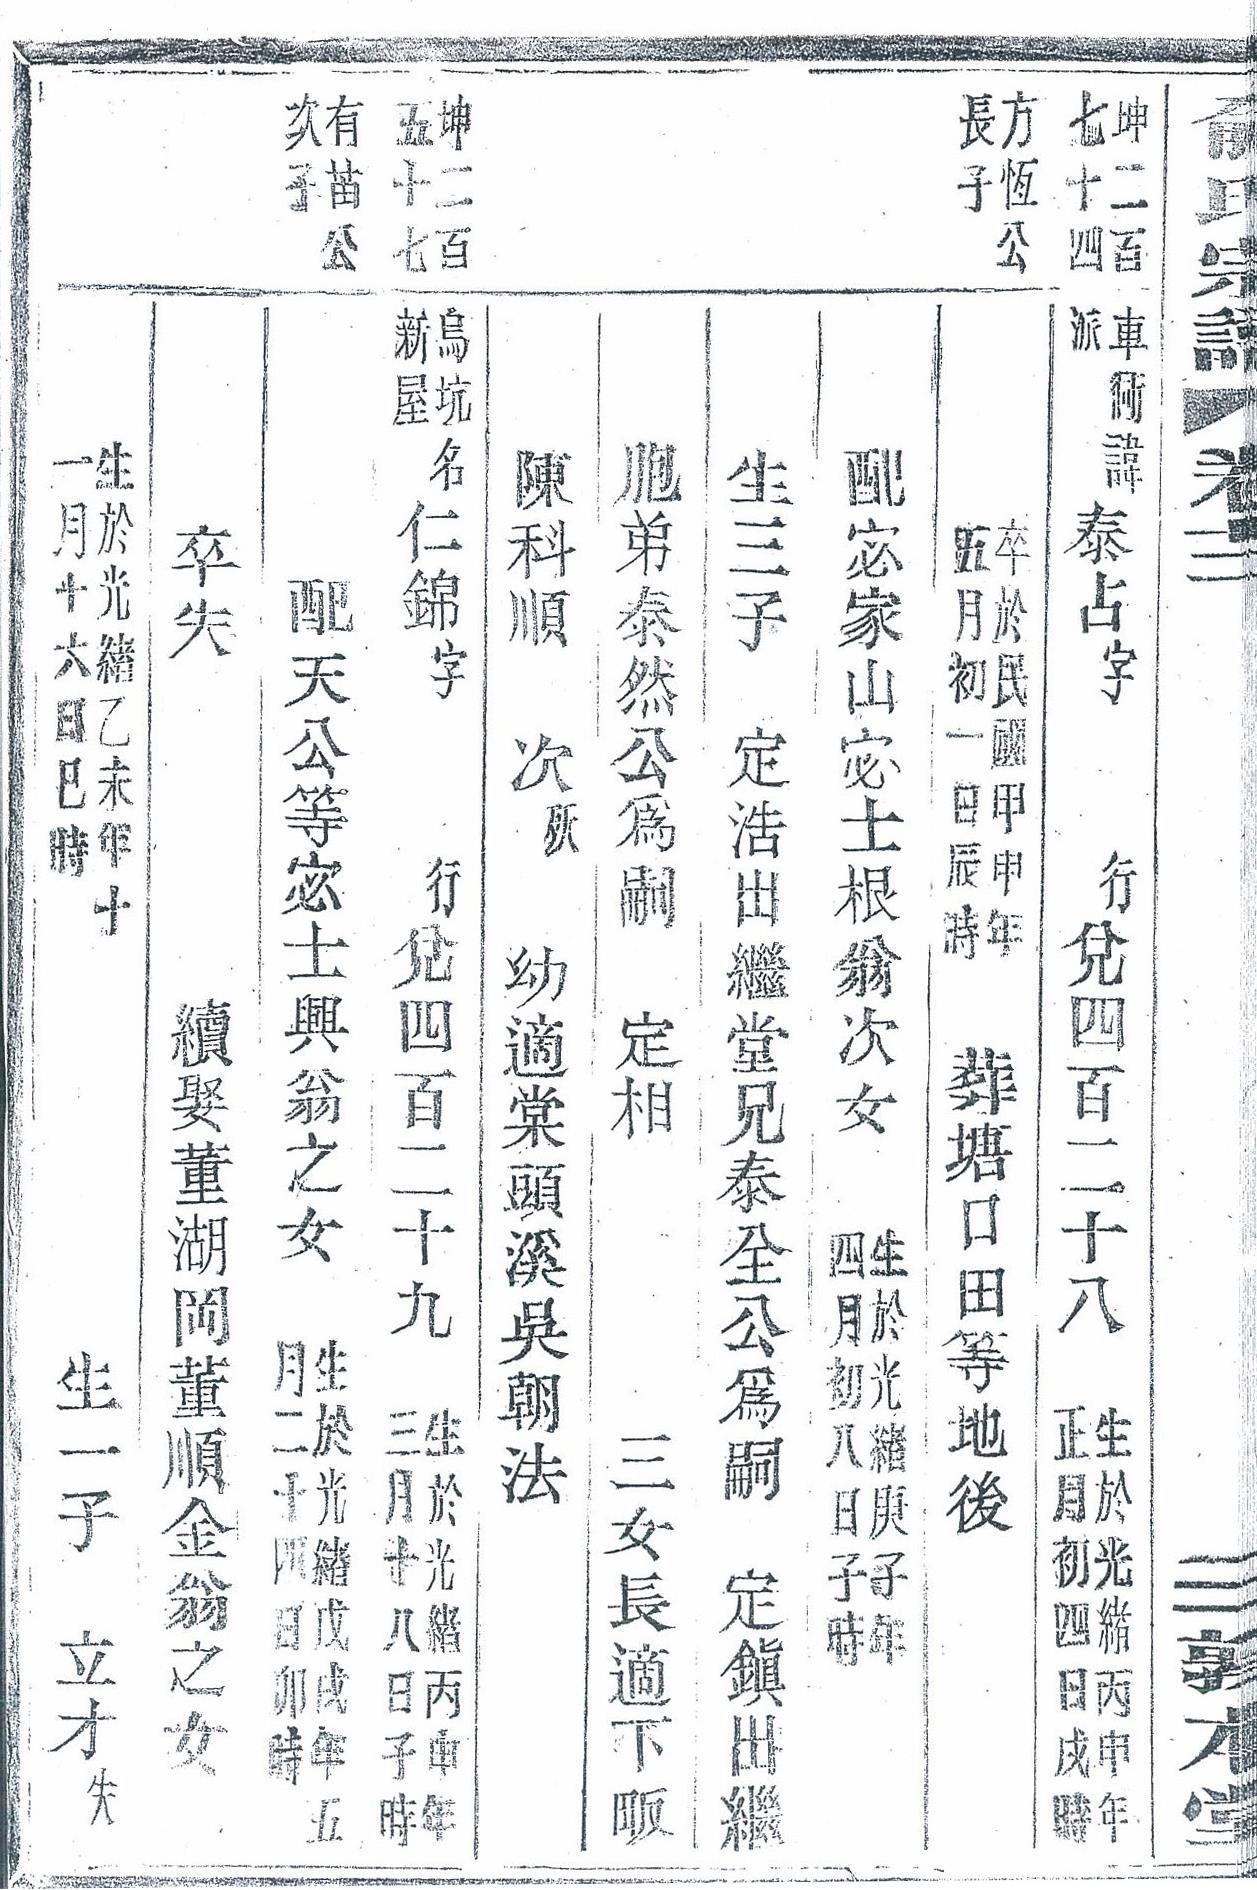 俞氏宗譜 卷三 三 敦本堂
坤二百
七十四
車衕
派
諱泰占字 行兌四百二十八
生於光緒丙申年
正月初四日戌時
方恆公
長子
卒於民國甲申年
五月初一日辰時
葬塘口田等地後
配宓家山宓士根翁次女
生於光緒庚子年
四月初八日子時
生三子 定浩出繼堂兄泰全公爲嗣 定鎮出繼
胞弟泰然公爲嗣 定相 三女長適下畈
陳科順 次殀 幼適棠頭溪吳朝法
坤二百
五十七
烏坑
新屋
名仁錦字 行兌四百二十九
生於光緒丙申年
三月廿八日子時
有苗公
次子
配天公等宓士興翁之女
生於光緒戊戌年五
月二十四日卯時
卒失 續娶董湖岡董順金翁之女
生於光緒乙未年十
一月十六日巳時
生一子 立才失